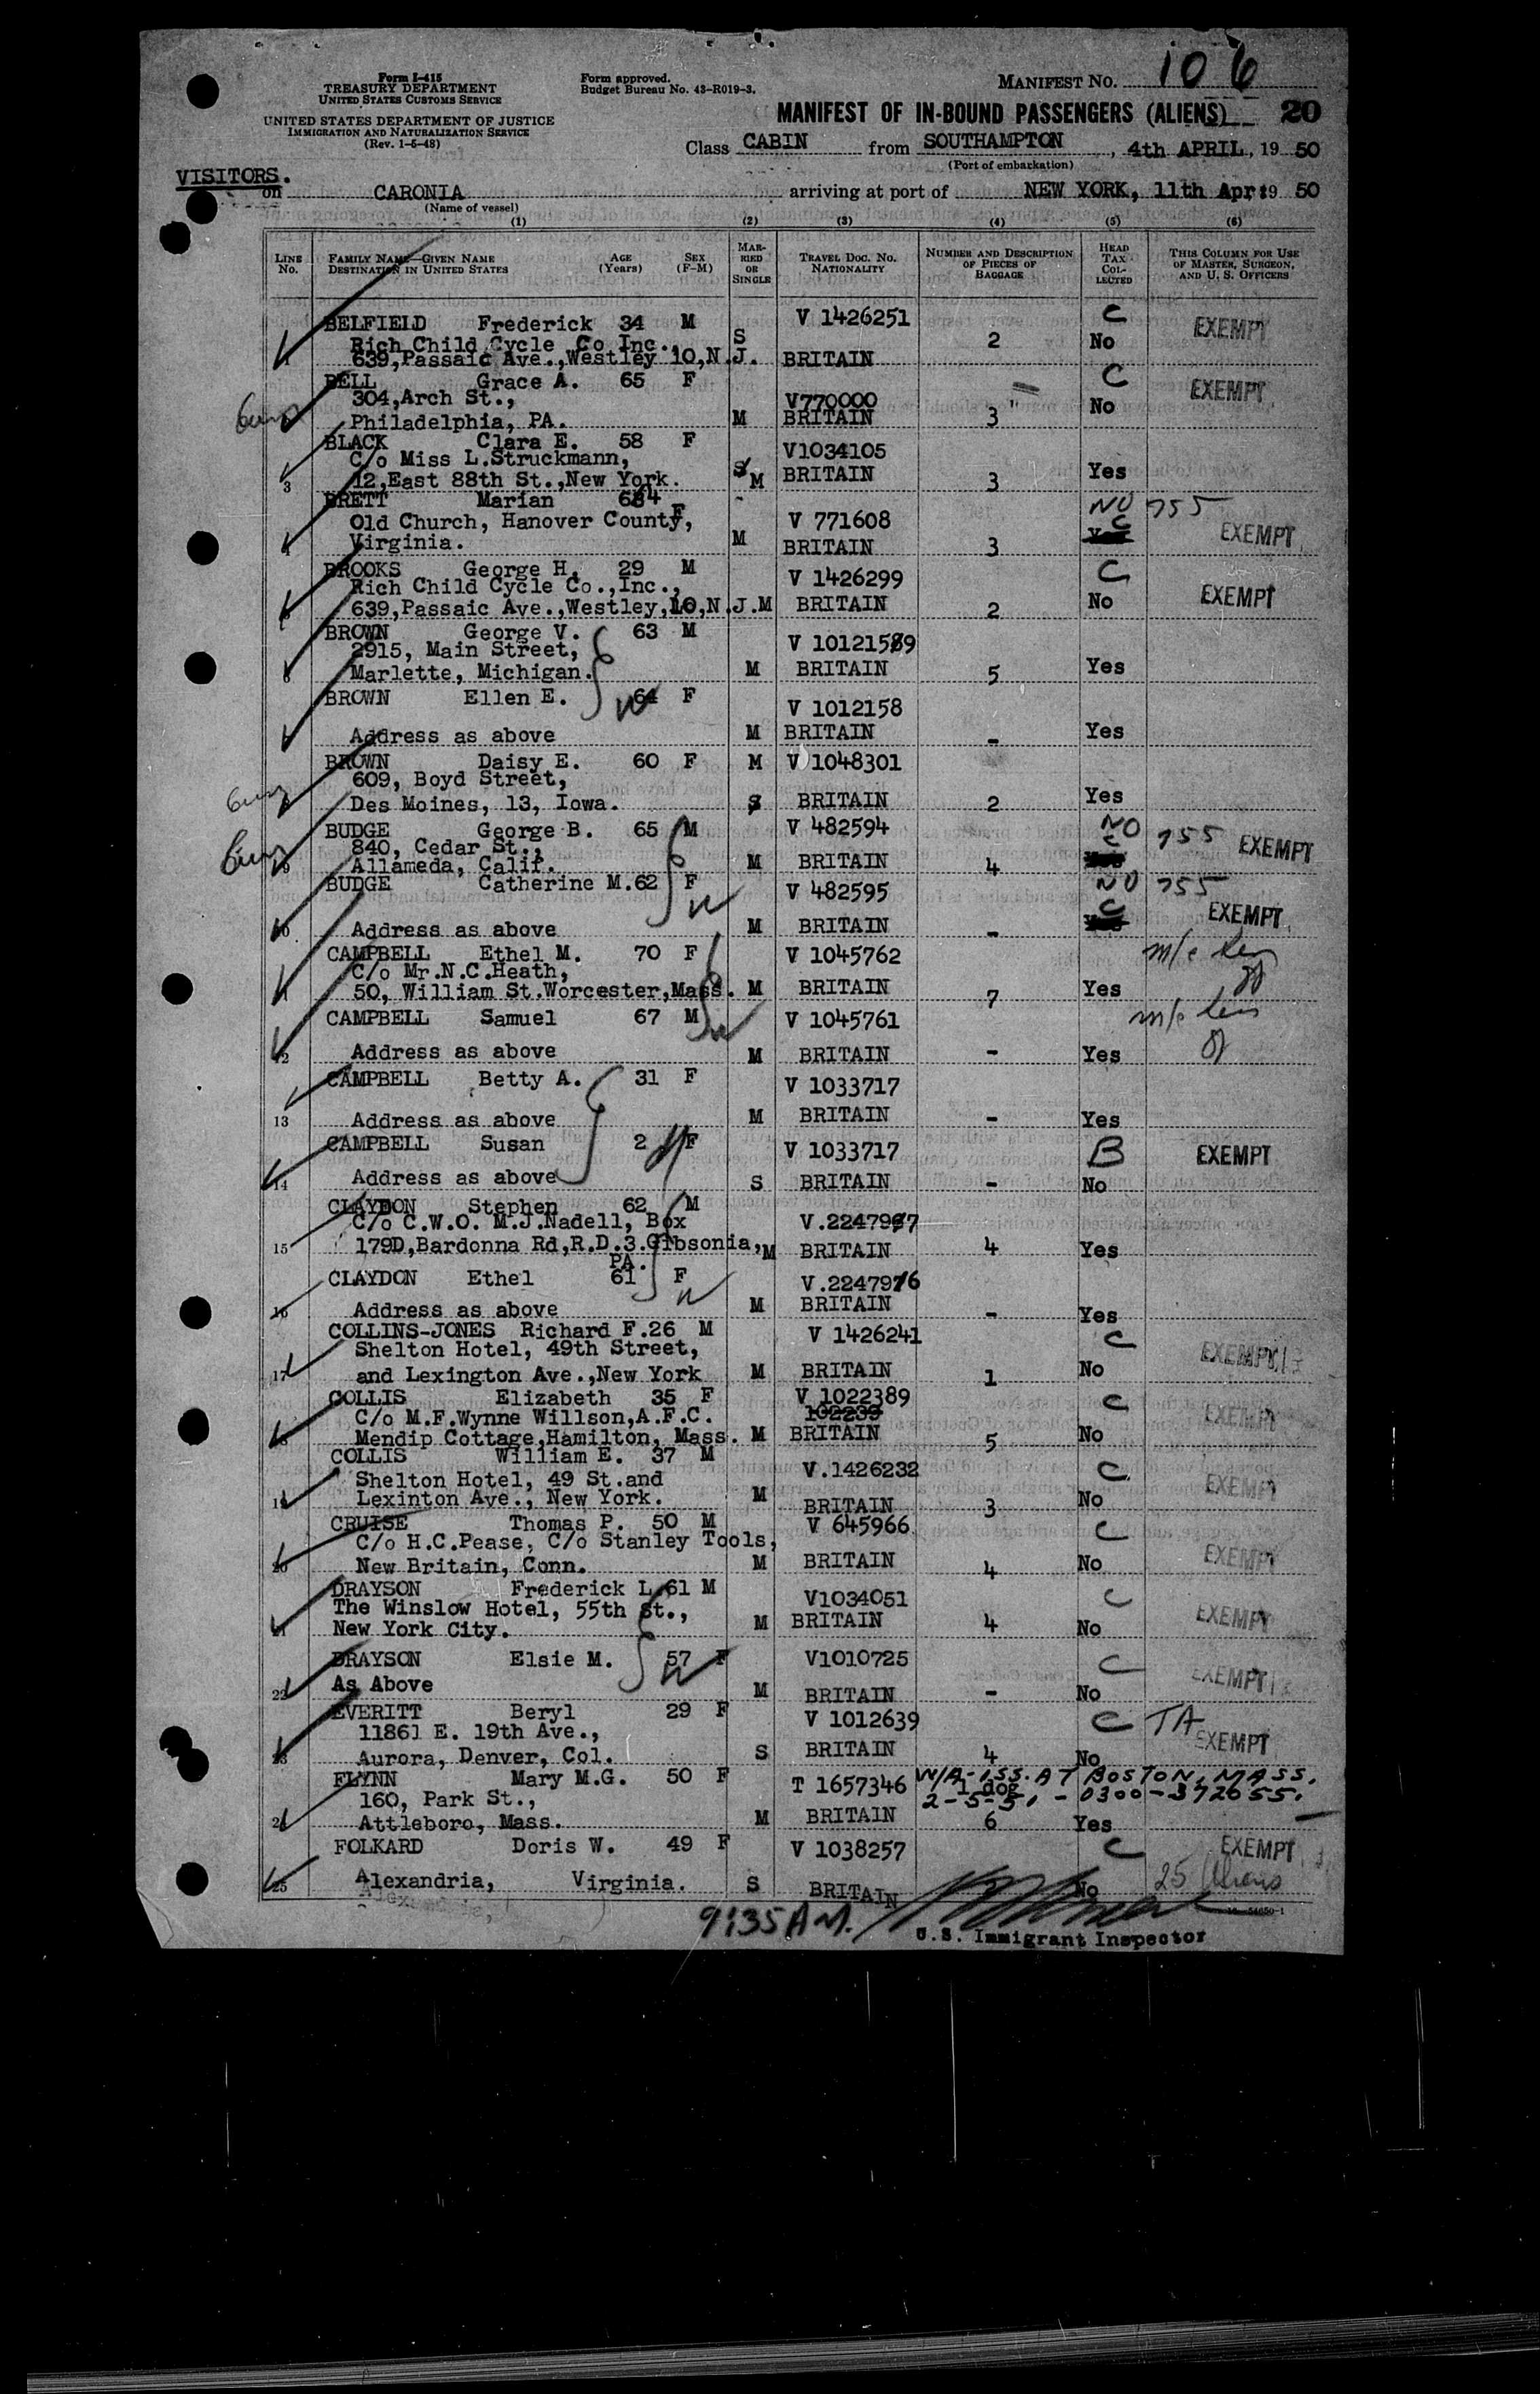 Form I-415
TREASURY DEPARTMENT
UNITED STATES CUSTOMS SERVICE
UNITED STATES DEPARTMENT OF JUSTICE
IMMIGRATION AND NATURALIZATION SERVICE
(Rev. 1-5-48)
Form approved.
Budget Bureau No. 43-R019-3.
MANIFEST NO. 106
MANIFEST OF IN-BOUND PASSENGERS (ALIENS) 20
Class CABIN from SOUTHAMPTON, 4th APRIL, 19 50
(Port of embarkation)
VISITORS.
on CARONIA arriving at port of NEW YORK, 11th Apr: 19 50
(Name of vessel)
(1) (2) (3) (4) (5) (6)
LINE No. FAMILY NAME—GIVEN NAME DESTINATION IN UNITED STATES AGE (Years) SEX (F-M) MARRIED OR SINGLE TRAVEL DOC. NO. NATIONALITY NUMBER AND DESCRIPTION OF PIECES OF BAGGAGE HEAD TAX COLLECTED THIS COLUMN FOR USE OF MASTER, SURGEON, AND U. S. OFFICERS
BELFIELD Frederick 34 M V 1426251 C EXEMPT
Rich Child Cycle Co Inc., S 2 No
1 639,Passaic Ave.,Westley 10,N.J. BRITAIN
BELL Grace A. 65 F C EXEMPT
304,Arch St., V770000 No
Philadelphia, PA. M BRITAIN 3
BLACK Clara E. 58 F V1034105
C/o Miss L.Struckmann,
3 12,East 88th St.,New York. S M BRITAIN 3 Yes
BRETT Marian 64 F NO 755
Old Church, Hanover County, V 771608 C EXEMPT
4 Virginia. M BRITAIN 3 Yes
BROOKS George H. 29 M V 1426299 C
Rich Child Cycle Co.,Inc., EXEMPT
5 639,Passaic Ave.,Westley,10,N.J.M BRITAIN 2 No
BROWN George V. 63 M V 1012159
2915, Main Street,
6 Marlette, Michigan. M BRITAIN 5 Yes
BROWN Ellen E. 64 F V 1012158
Address as above M BRITAIN - Yes
BROWN Daisy E. 60 F M V 1048301
609, Boyd Street,
Des Moines, 13, Iowa. S BRITAIN 2 Yes
BUDGE George B. 65 M V 482594 NO 755 EXEMPT
840, Cedar St., C
9 Allameda, Calif. M BRITAIN 4
BUDGE Catherine M.62 F V 482595 NO 755
C EXEMPT
10 Address as above M BRITAIN -
CAMPBELL Ethel M. 70 F V 1045762
C/o Mr.N.C.Heath,
50, William St.Worcester,Mass. M BRITAIN 7 Yes
CAMPBELL Samuel 67 M V 1045761
12 Address as above M BRITAIN - Yes
CAMPBELL Betty A. 31 F V 1033717
13 Address as above M BRITAIN - Yes
CAMPBELL Susan 2 F V 1033717 B EXEMPT
14 Address as above S BRITAIN - No
CLAYDON Stephen 62 M
C/o C.W.O. M.J.Nadell, Box V.224797
15 179D,Bardonna Rd,R.D.3.Gibsonia, M BRITAIN 4 Yes
PA.
CLAYDON Ethel 61 F V.224796
16 Address as above M BRITAIN - Yes
COLLINS-JONES Richard F.26 M V 1426241 C
Shelton Hotel, 49th Street, EXEMPT
17 and Lexington Ave.,New York M BRITAIN 1 No
COLLIS Elizabeth 35 F V 1022389 C
C/o M.F.Wynne Willson,A.F.C. 102239 EXEMPT
18 Mendip Cottage,Hamilton, Mass. M BRITAIN 5 No
COLLIS William E. 37 M V.1426232 C
Shelton Hotel, 49 St.and EXEMPT
19 Lexinton Ave., New York. M BRITAIN 3 No
CRUISE Thomas P. 50 M V 645966 C
C/o H.C.Pease, C/o Stanley Tools, EXEMPT
20 New Britain, Conn. M BRITAIN 4 No
DRAYSON Frederick L 61 M V1034051 C
The Winslow Hotel, 55th St., EXEMPT
21 New York City. M BRITAIN 4 No
DRAYSON Elsie M. 57 F V1010725 C EXEMPT
22 As Above M BRITAIN - No
EVERITT Beryl 29 F V 1012639 C TA
11861 E. 19th Ave., EXEMPT
23 Aurora, Denver, Col. S BRITAIN 4 No
FLYNN Mary M.G. 50 F T 1657346 W/A-ISS. AT BOSTON, MASS.
160, Park St., 1 dog 2-5-51 - 0300-372655.
24 Attleboro, Mass. M BRITAIN 6 Yes
FOLKARD Doris W. 49 F V 1038257 C EXEMPT
25 Alexandria, Virginia. S BRITAIN No 25 Aliens
9:35 AM.
U.S. Immigrant Inspector